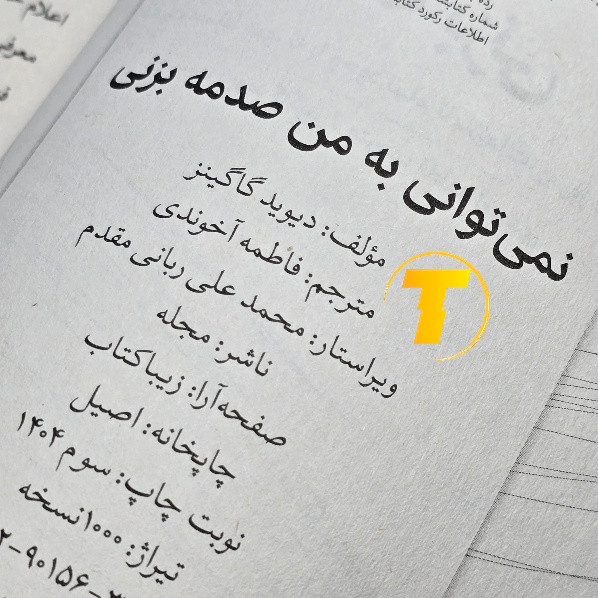 شماره کتابشنا
اطلاعات رکورد کتابش
اعلام
معرفی
نمی‌توانی به من صدمه بزنی
مؤلف: دیوید گاگینز
مترجم: فاطمه آخوندی
ویراستار: محمد علی ربانی مقدم
ناشر: مجله
صفحه‌آرا: زیباکتاب
چاپخانه: اصیل
نوبت چاپ: سوم ۱۴۰۴
تیراژ: ۱۰۰۰ نسخه
۲-۹۰۱۵۶-
T